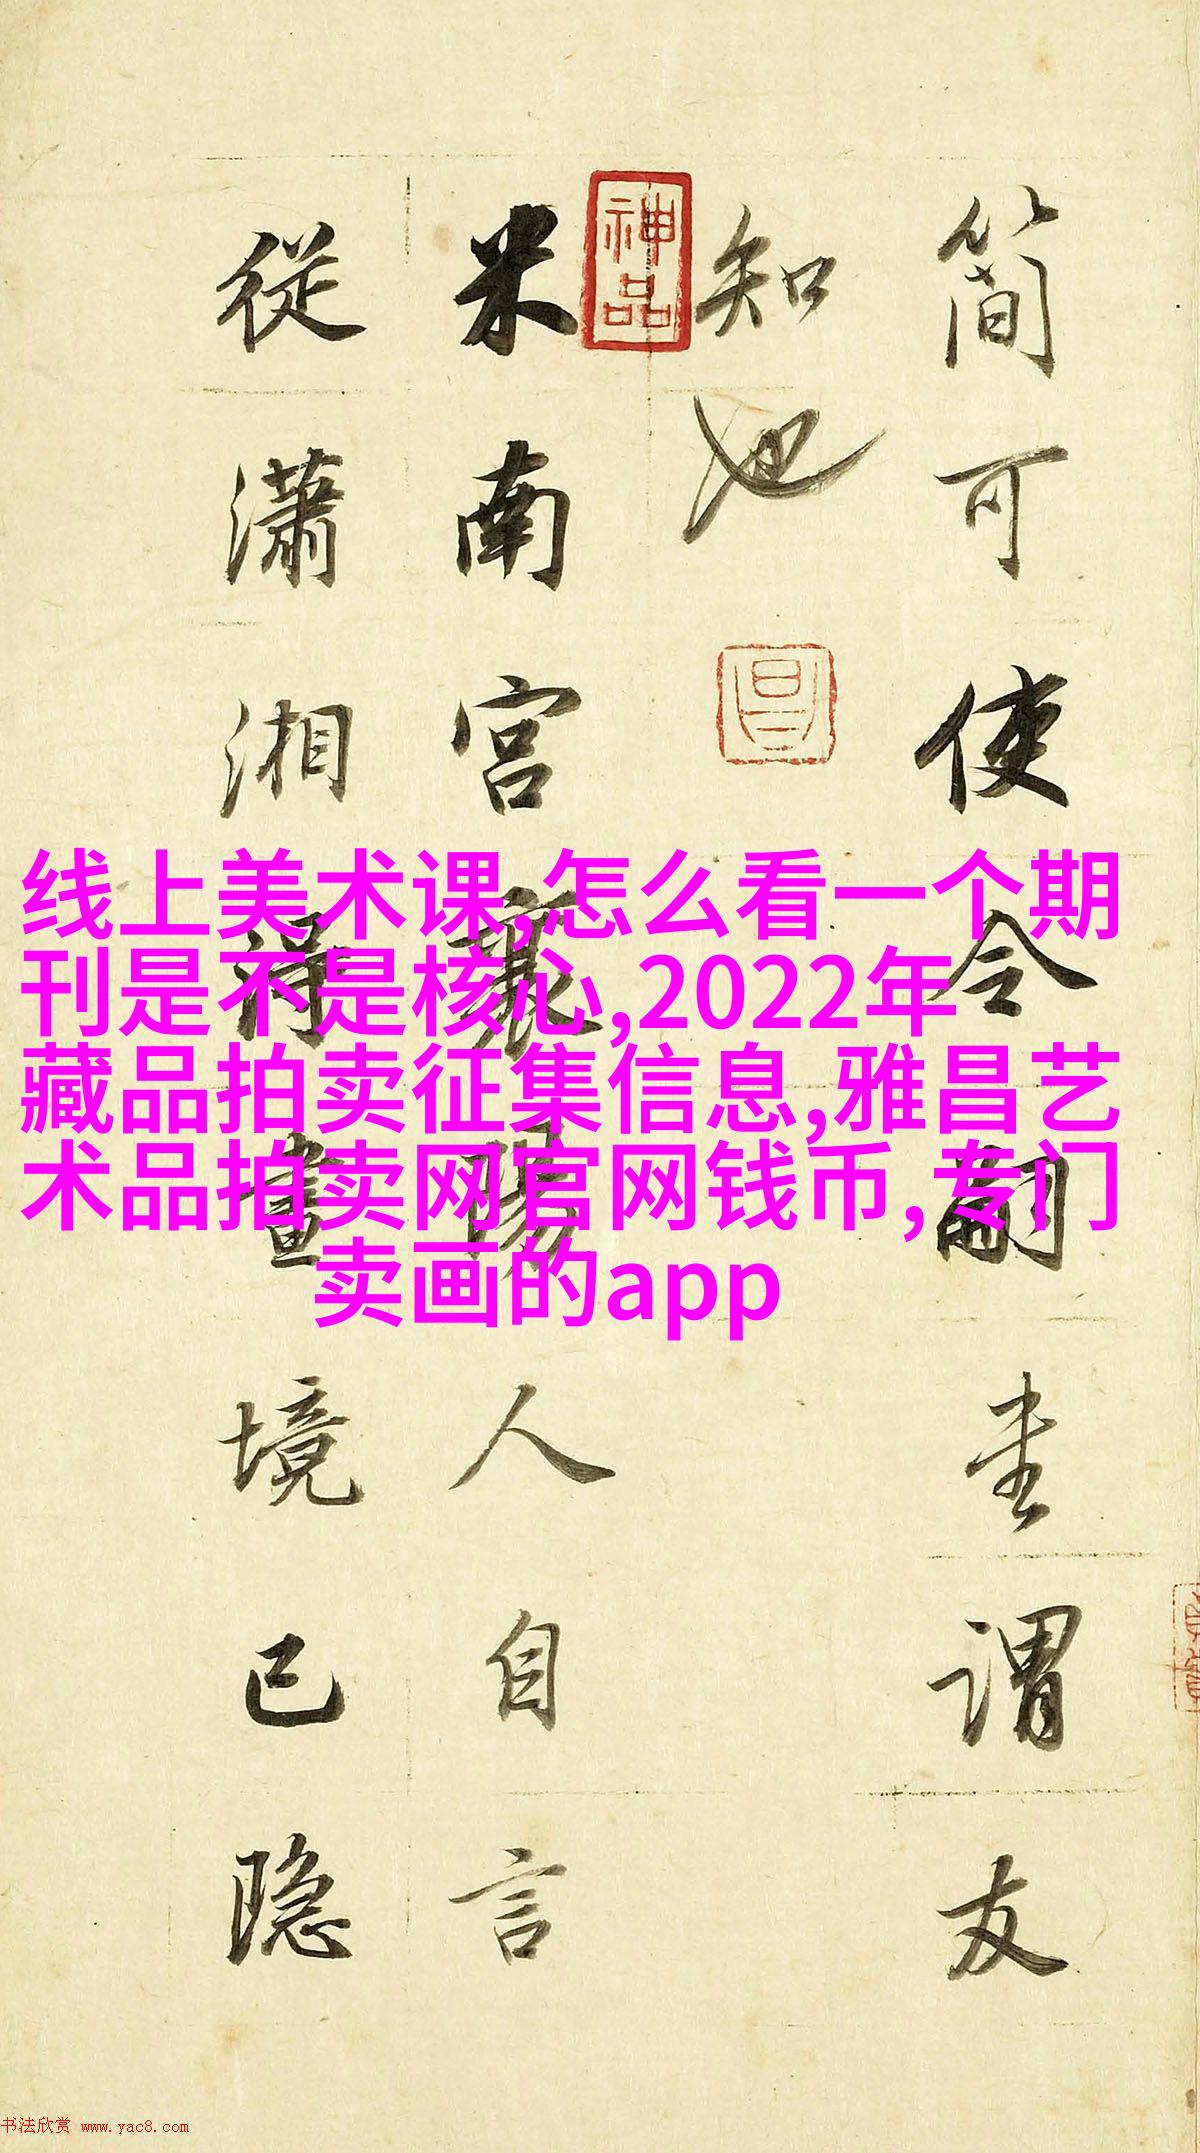 簡可使令翻圭謂友
知也
米南宮襄陽人自言
從瀟湘得畫境已隐
神品
線上美术课,怎么看一个期
刊是不是核心,2022年
藏品拍卖征集信息,雅昌艺
术品拍卖网官网钱币,专门
卖画的app
书法欣赏 www.yac8.com